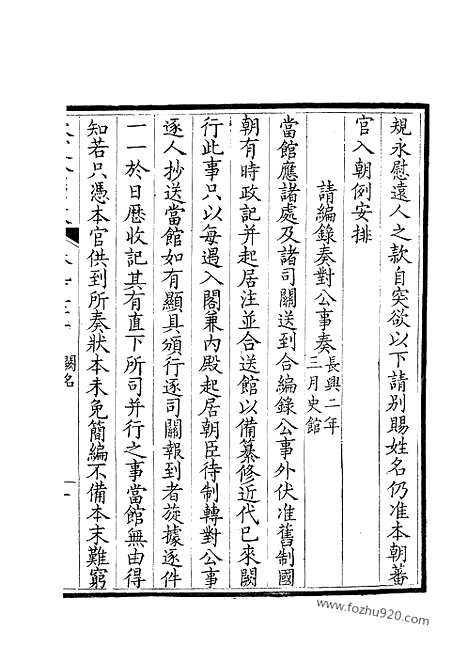 規永慰遠人之款自突欲以下請別賜姓名仍准本朝蕃
官入朝例安排
請編錄奏對公事奏 長興二年三月史館
當館應諸處及諸司關送到合編錄公事外伏准舊制國
朝有時政記并起居注並合送館以備纂修近代已來闕
行此事只以每遇入閣兼內殿起居朝臣待制轉對公事
逐人抄送當館如有顯具頒行逐司關報到者旋據逐件
一一於日曆收記其有直下所司并行之事當館無由得
知若只憑本官供到所奏狀本未免簡編不備本末難窮
闕名
www.fozhu920.com